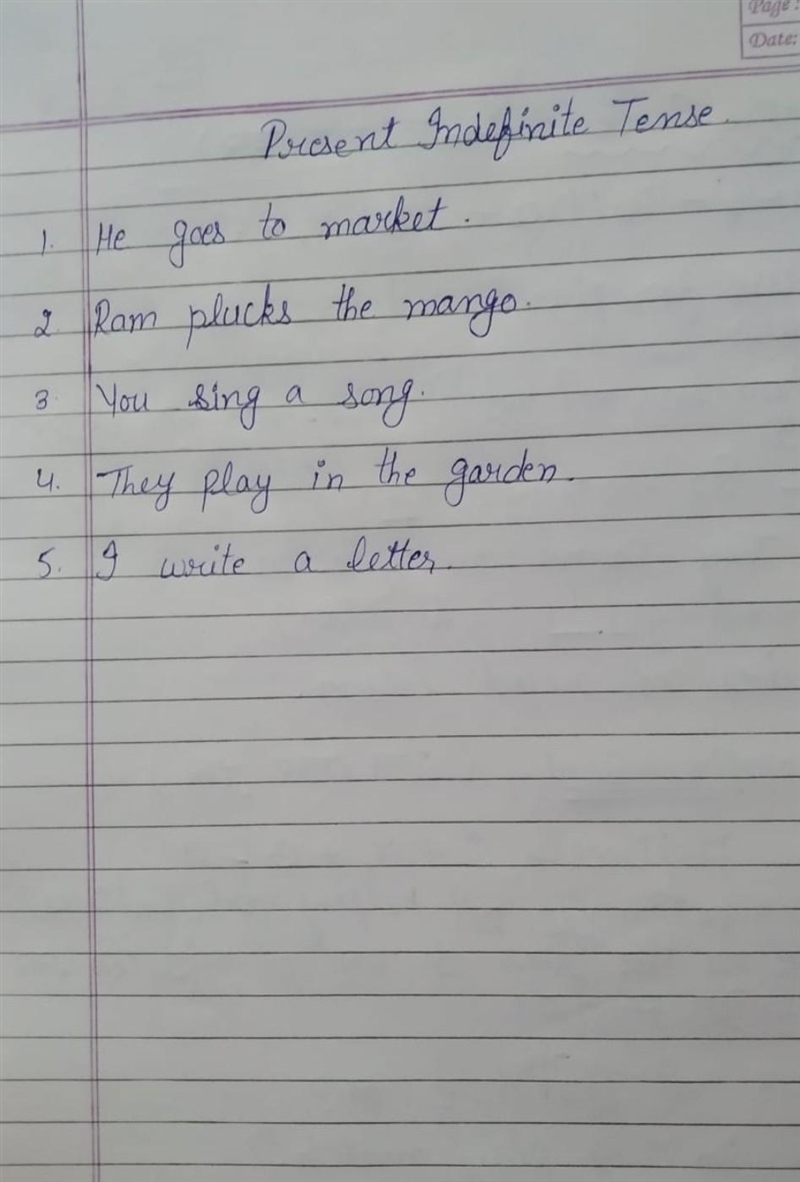 Page:
Date:
Present Indefinite Tense.
1. He goes to market.
2 Ram plucks the mango.
3. You sing a song.
4. They play in the garden.
5. I write a letter.